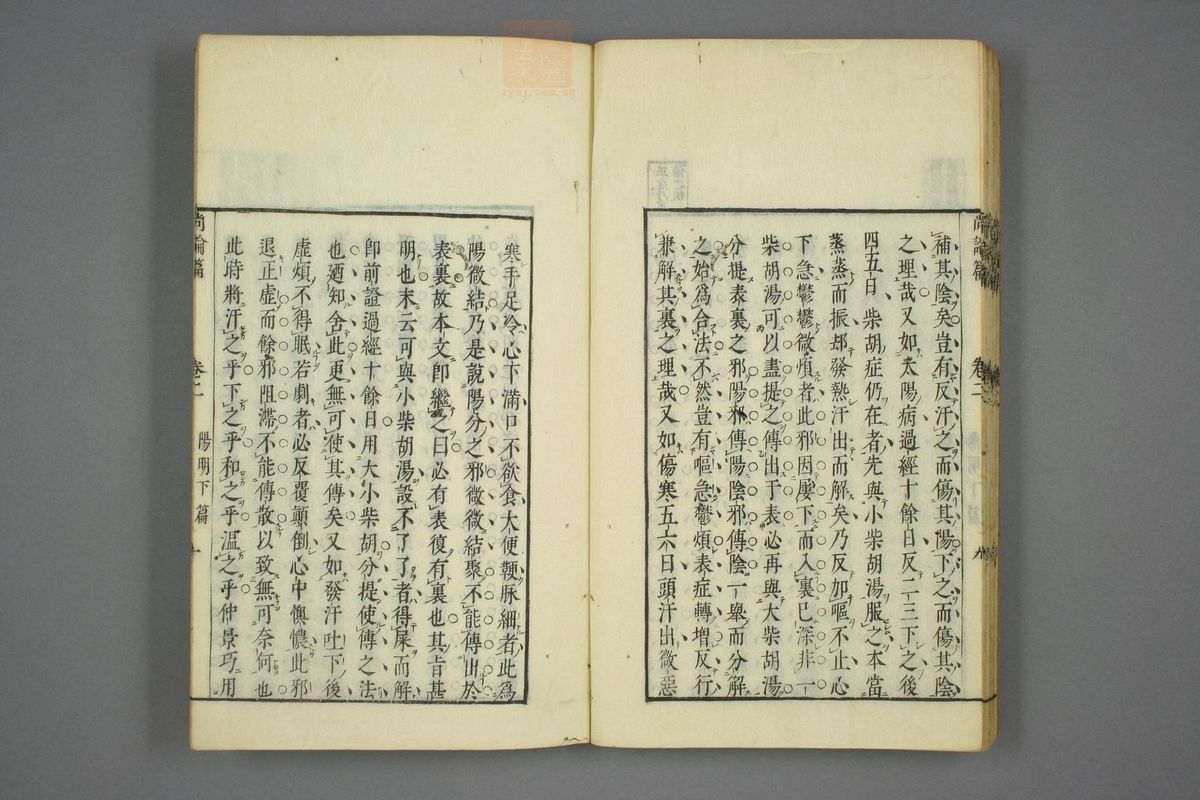 補其陰矣豈有反汗之而傷其陽下之而傷其陰
之理哉又如太陽病過經十餘日反二三下之後
四五日柴胡症仍在者先與小柴胡湯服之本當
蒸蒸而振却發熱汗出而解矣乃反加嘔不止心
下急鬱鬱微煩者此邪因屢下而入裏已深非一
柴胡湯可以盡提之傳出于表必再與大柴胡湯
分提表裏之邪陽邪傳陽陰邪傳陰一舉而分解
之始爲合法不然豈有嘔急鬱煩表症轉增反行
兼解其裏之理哉又如傷寒五六日頭汗出微惡
尚論篇 卷二 九
寒手足冷心下滿口不欲食大便鞕脉細者此爲
陽微結乃是說陽分之邪微微結聚不能傳出於
表裏故本文卽繼之曰必有表復有裏也其旨甚
明也末云可與小柴胡湯設不了了者得屎而解
卽前證過經十餘日用大小柴胡分提使傳之法
也廼知舍此更無可使其傳矣又如發汗吐下後
虛煩不得眠若劇者必反覆顚倒心中懊憹此邪
退正虛而餘邪阻滯不能傳散以致無可奈何也
此時將汗之乎下之乎和之乎溫之乎仲景巧用
尚論篇 卷二 陽明下篇 十
zysj.com.cn